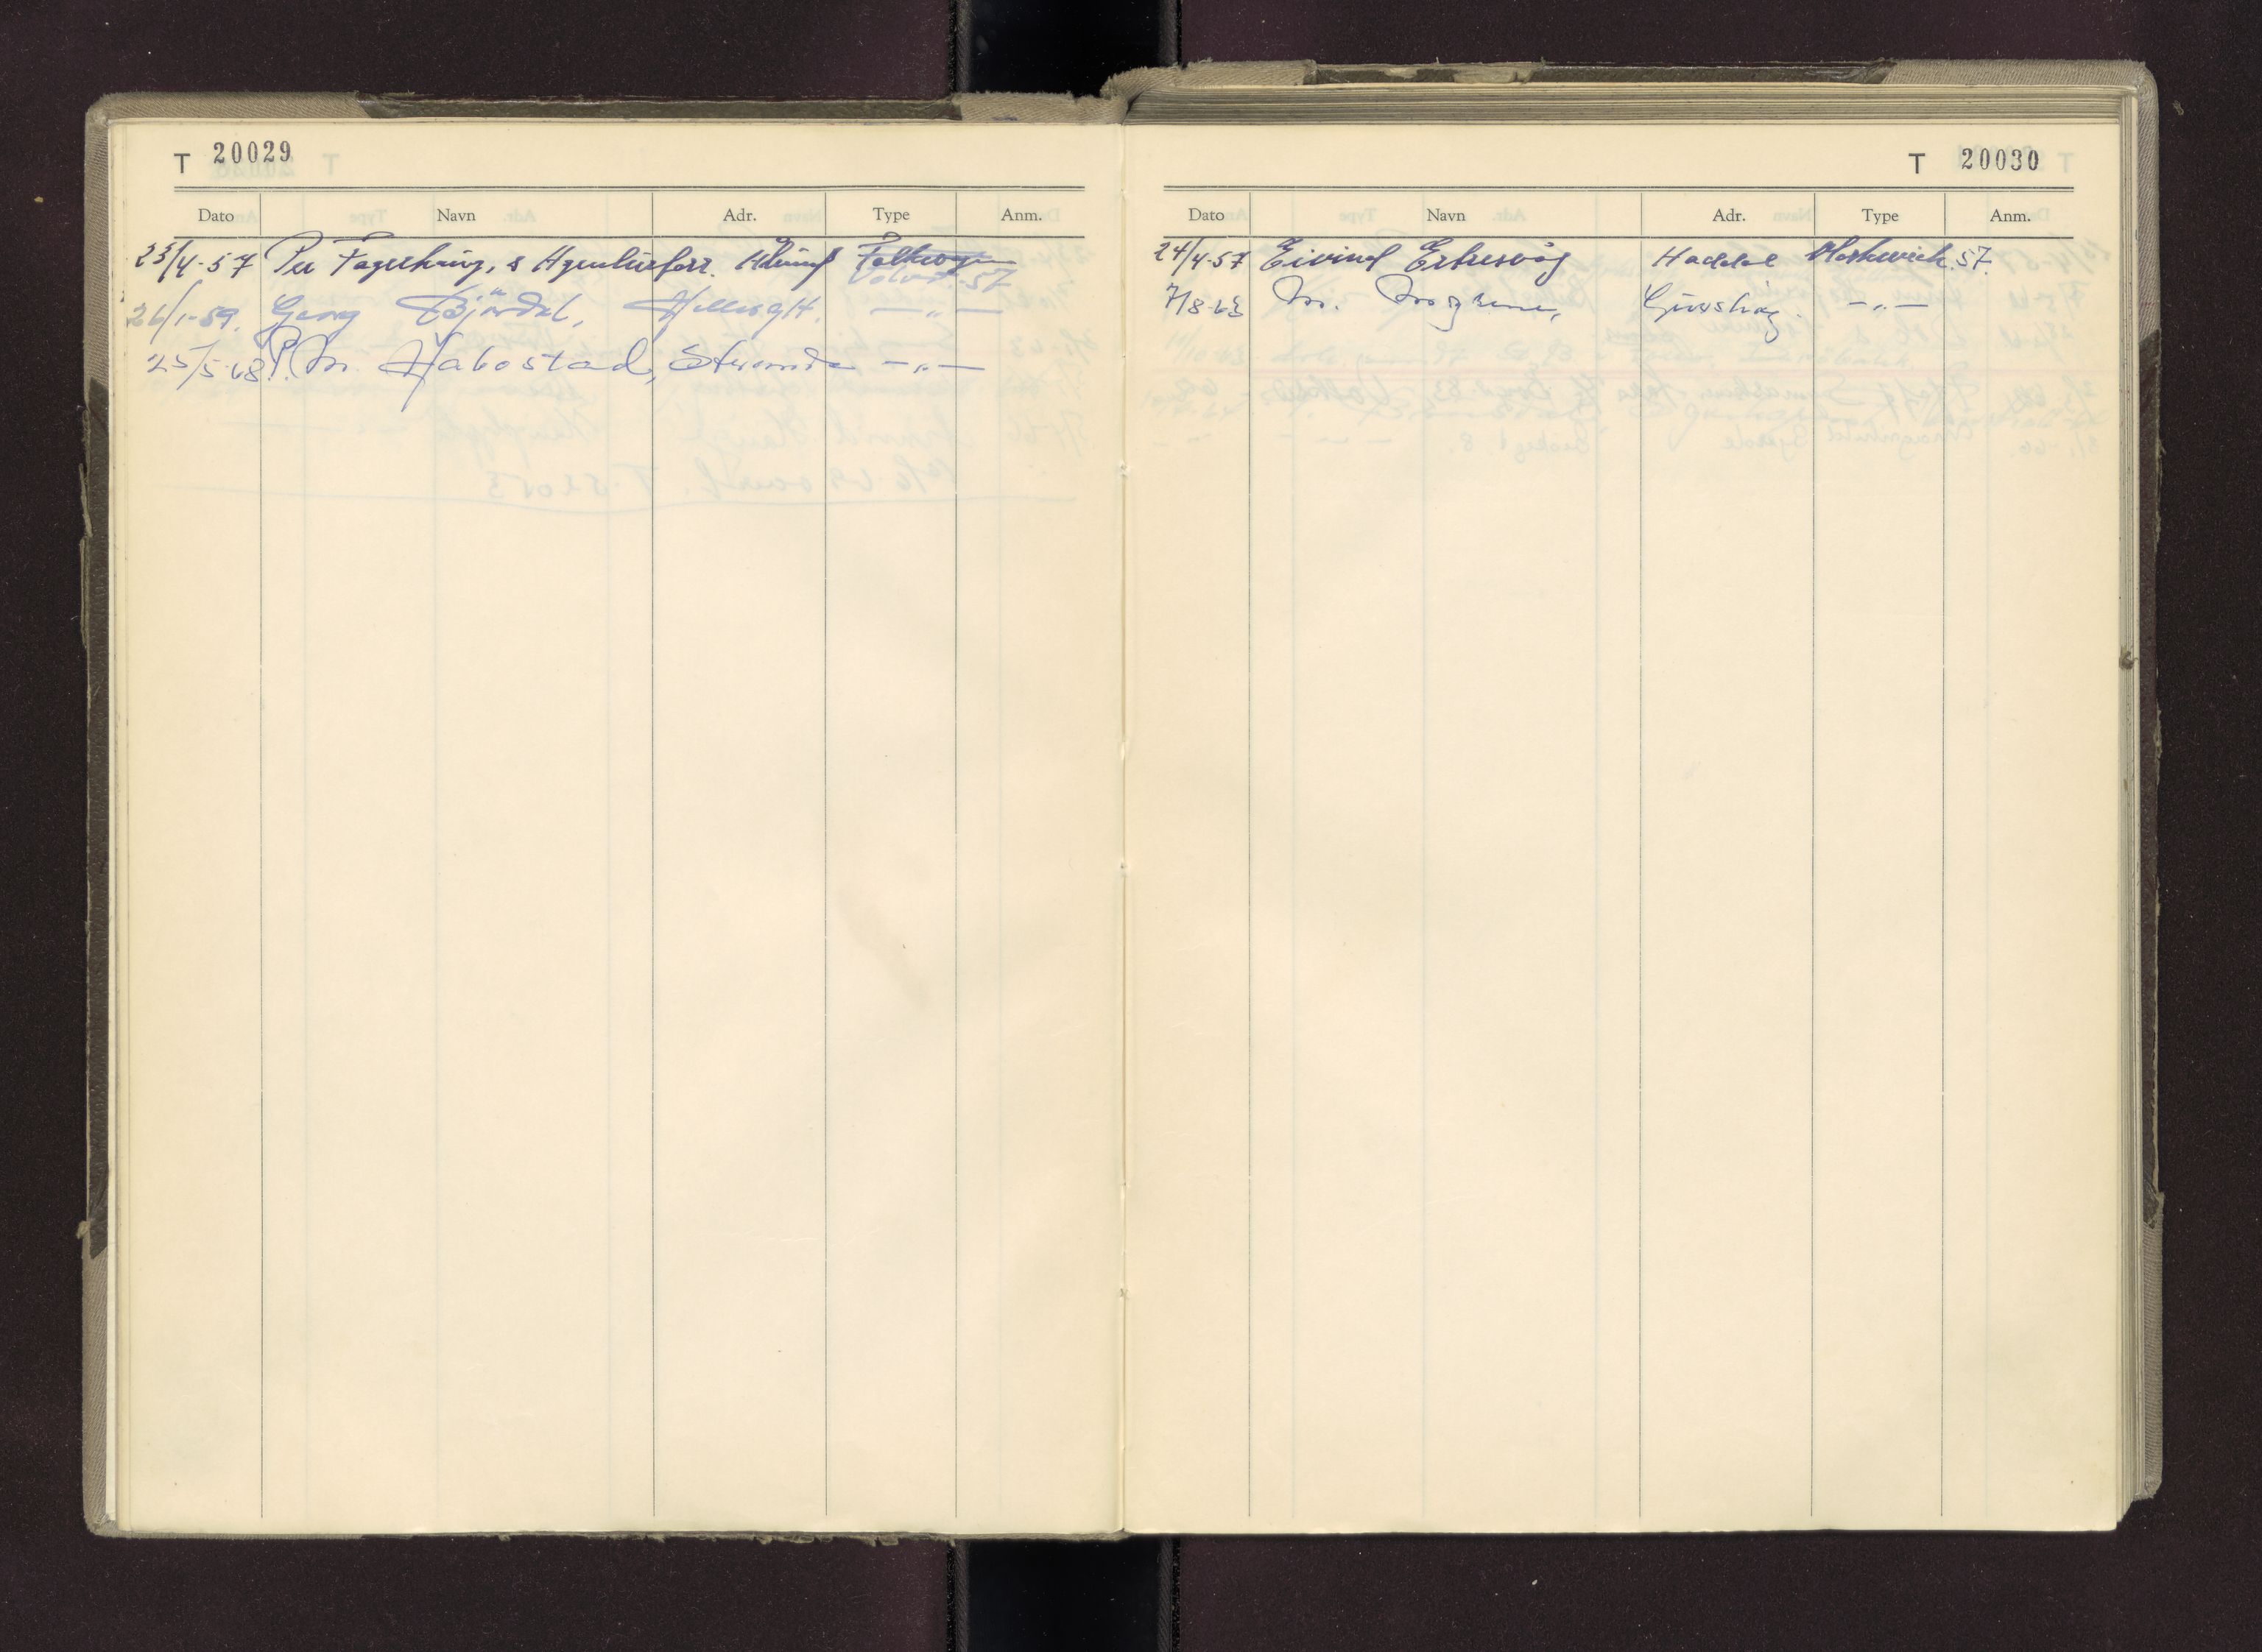 T 20029
Dato Navn Adr. Type Anm.
23/4-57 Per Fagerhaug, s Agenturforr. Ålesund Folkevogn
Volvo. 57
26/1-59. Georg Bjørdal, —"—
25/5-68 P. M. Habostad, Stranda —"—
T 20030
Dato Navn Adr. Type Anm.
24/4-57 Eivind Erkesvåg Haddal Moskwich. 57.
7/8-63 M. Mogrene, Gursken. —"—